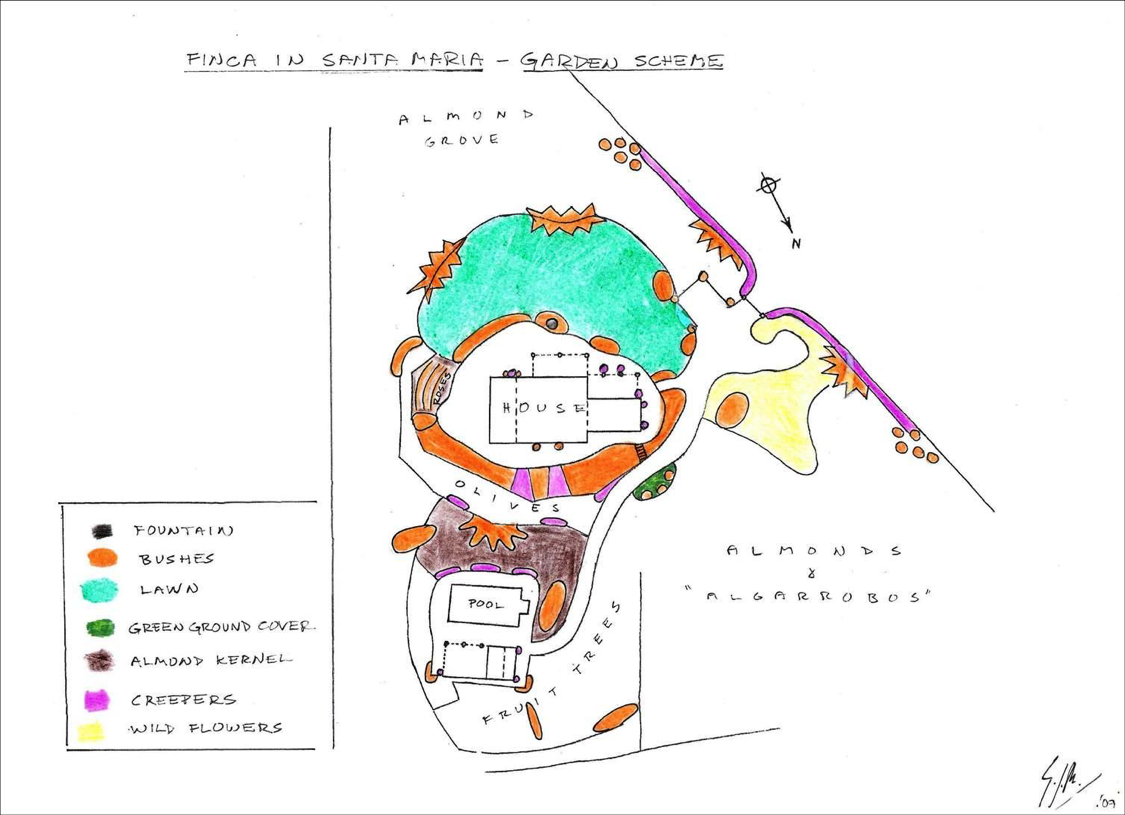 FINCA IN SANTA MARIA - GARDEN SCHEME
ALMOND
GROVE
N
ROSES
HOUSE
OLIVES
POOL
FRUIT TREES
ALMONDS
&
"ALGARROBOS"
FOUNTAIN
BUSHES
LAWN
GREEN GROUND COVER.
ALMOND KERNEL
CREEPERS
WILD FLOWERS